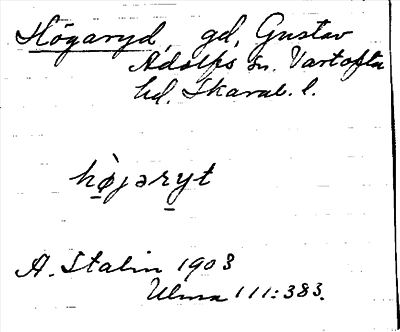 Högaryd, gd, Gustav
Adolfs sn. Vartofta
hd. Skarab. l.
hø̀jaryt
A. Stalin 1903
Ulma 111:383.